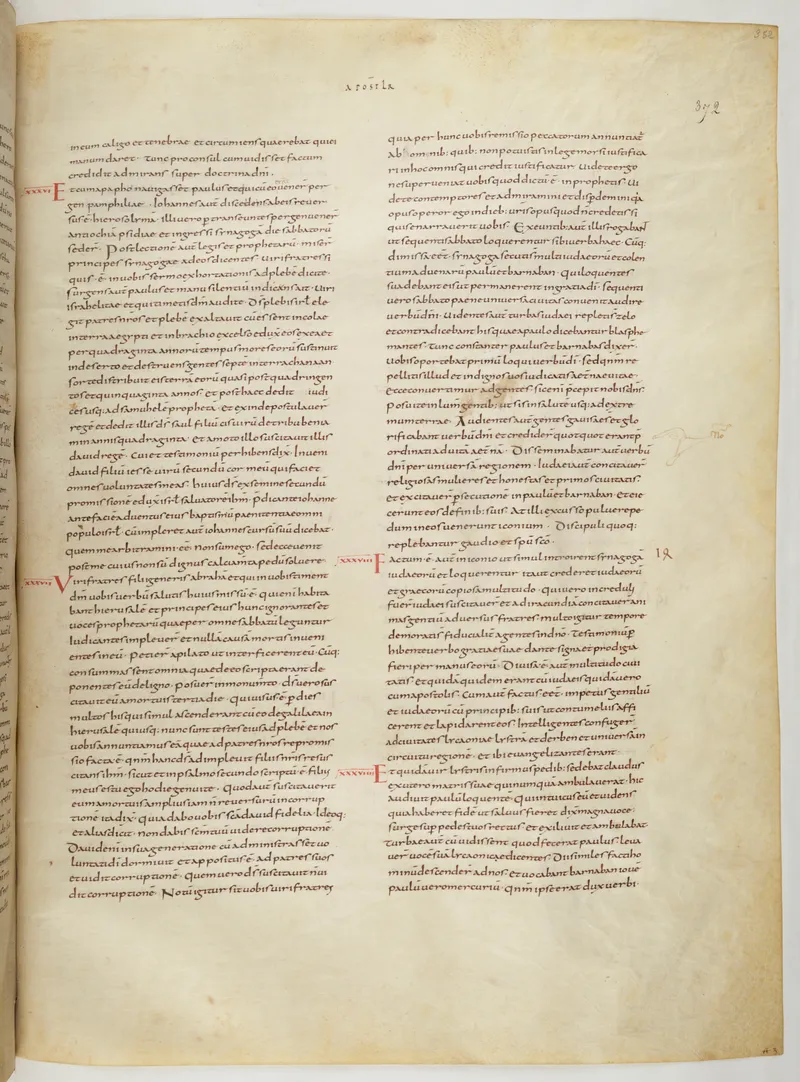 APOSTLA
352
392
ineum caligo et tenebrae et circumiens quaerebat quiei
manum daret. Tunc proconsul cum uidisset factum
credidit admirans super doctrina dni.
XXXVI Et cum a papho nauigasset paulus et qui cū eo uener per
gen pamphiliae. Iohannes aut discedens ab eis reuer
sus ē hierosolyma. Illi uero pertranseuntes pergen uener
antiochiā pisidiae et ingressi synagogā die sabbatorū
seder. Post lectionē aut legis et prophetarū miser
principes synagogae ad eos dicentes. Uiri fratres si
quis ē in uobis sermo exhortationis ad plebē dicite.
surgens aut paulus et manu silentiū indicens ait. Uiri
israhelitae et qui timetis dm audite. Ds plebis isrl ele
git patres nros et plebē exaltauit cū essent incolae
in terra aegypti et in brachio excelso eduxit eos ex ea et
per quadraginta annorū tempus mores eorū sustinuit
in deserto et destruens gentes septē in terra chanaan
sorte distribuit eis terrā eorū quasi post quadringen
tos et quinquaginta annos. et post haec dedit iudi
ces usq; ad samuhelē prophetā. et exinde postulauer
regē et dedit illis ds saul filiū cis uirū de tribu beniā
min annis quadraginta. Et amoto illo suscitauit illis
dauid regē. Cui et testimoniū perhibens dix. Inueni
dauid filiū iesse uirū secundū cor meū qui faciet
omnes uoluntates meas. huius ds ex semine secundū
promissionē eduxit isrl saluatorē ihm. p̄dicante iohanne
ante faciē aduentus eius baptismū paenitentiae omni
populo isrl. Cū impleret aut iohannes cursū suū dicebat.
quem me arbitramini eē. non sum ego. sed ecce uenit
post me cuius non sū dignus calciamta pedū soluere.
XXXVII Viri fratres filii generis abraham et qui in uobis timent
dm uobis uerbū salutis huius missū ē. qui enī habita
bant hierusalē et principes eius hunc ignorantes et
uoces prophetarū quae per omne sabbatū leguntur
iudicantes impleuer et nullā causā mortis inueni
entes in eū. petier a pilato ut interficerent eū. Cūq;
consummassent omnia quae de eo scripta erant de
ponentes eū de ligno. posuer in monumto. ds uero sus
citauit eū a mortuis tertia die. qui uisus ē p̄ dies
multos his qui simul ascenderant cū eo de galilaea in
hierusalē qui usq; nunc sunt testes eius ad plebē et nos
uobis annuntiamus eā quae ad patres nros repromis
sio facta ē. qnm hanc ds adimpleuit filiis nris resus
citans ihm. sicut et in psalmo secundo scriptū ē. filius
meus es tu ego hodie genui te. Quod aut suscitauerit
eum a mortuis amplius iam n reuersurū in corrup
tionē ita dix. quia dabo uobis scā dauid fidelia. Ideoq;
et alias dicit. non dabis scm tuū uidere corruptionē.
Dauid enī in sua generatione cū administrasset uo
luntati dī dormiuit et appositus ē ad patres suos
et uidit corruptionē. quem uero ds suscitauit n ui
dit corruptionē. Notū igitur sit uobis uiri fratres
quia per hunc uobis remissio peccatorum annuntiat
ab omnib; quib; non potuistis in lege morsi iustifica
ri in hoc omnis qui credit iustificatur. Uidete ergo
ne superueniat uobis quod dictū ē in prophetis. Ui
dete contemptores et admiramini et disperdimini qa
opus operor ego in dieb; uris opus quod n credetis si
quis enarrauerit uobis. Exeuntib; aut illis rogabant
ut sequenti sabbato loquerentur sibi uerba haec. Cūq;
dimissa eēt synagoga secuti s multi iudaeorū et colen
tium aduenarū paulū et barnaban. qui loquentes
suadebant eis ut permanerent in gratia dī. sequenti
uero sabbato paene uniuersa ciuitas conuenit audire
uerbū dni. Uidentes aut turbas iudaei repleti s zelo
et contradicebant his quae a paulo dicebantur blasphe
mantes. Tunc constanter paulus et barnabas dixer.
Uobis oportebat primū loqui uerbū dī. sed qnm re
pellitis illud et indignos uos iudicastis aetnae uitae.
ecce conuertimur ad gentes. sic enī p̄cepit nobis dns.
posui te in lum gentib; ut sis in salutē usq; ad extre
mum terrae. Audientes aut gentes gauisae s et glo
rificabant uerbū dni et credider quotquot erant p̄
ordinati ad uitā aetnā. Disseminabatur aut uerbū
dni per uniuersā regionem. Iudaei aut concitauer
religiosas mulieres et honestas et primos ciuitatis.
et excitauer persecutione in paulū et barnaban. et eie
cerunt eos de finib; suis. At illi excusso puluere pe
dum in eos uenerunt iconium. Discipuli quoq;
replebantur gaudio et spū scō.
XXXVIII Factum ē aut in iconio ut simul introirent synagogā
iudaeorū et loquerentur ita ut crederet iudaeorū
et graecorū copiosa multitudo. qui uero increduli
fuer iudaei suscitauer et ad iracundiā concitauer ani
mas gentiū aduersus fratres. multo igitur tempore
demorati s fiducialit agentes in dno. testimoniū p̄
hibente uerbo gratiae suae. dante signa et prodigia
fieri per manus eorū. Diuisa ē aut multitudo ciui
tatis. et quidā quidem erant cū iudaeis quidā uero
cum apostolis. Cum aut factus eēt impetus gentiliū
et iudaeorū cū principib; suis ut contumeliis affi
cerent et lapidarent eos. Intellegentes confuger
ad ciuitates lycaoniae lystrā et derben et uniuersā in
circuitu regionē. et ibi euangelizantes erant.
XXXVIIII Et quidā uir lystris infirmus pedib; sedebat claudus
ex utero matris suae qui numquā ambulauerat. hic
audiuit paulū loquentē. Qui intuitus eū et uidens
quia haberet fidē ut saluus fieret dix magna uoce.
surge sup pedes tuos rectus. et exiliuit et ambulabat.
turbae aut cū uidissent quod fecerat paulus. leua
uer uocē suā lycaonicae dicentes. Dii similes facti ho
minib; descender ad nos. et uocabant barnaban iouē
paulū uero mercuriū. qnm ipse erat dux uerbi.